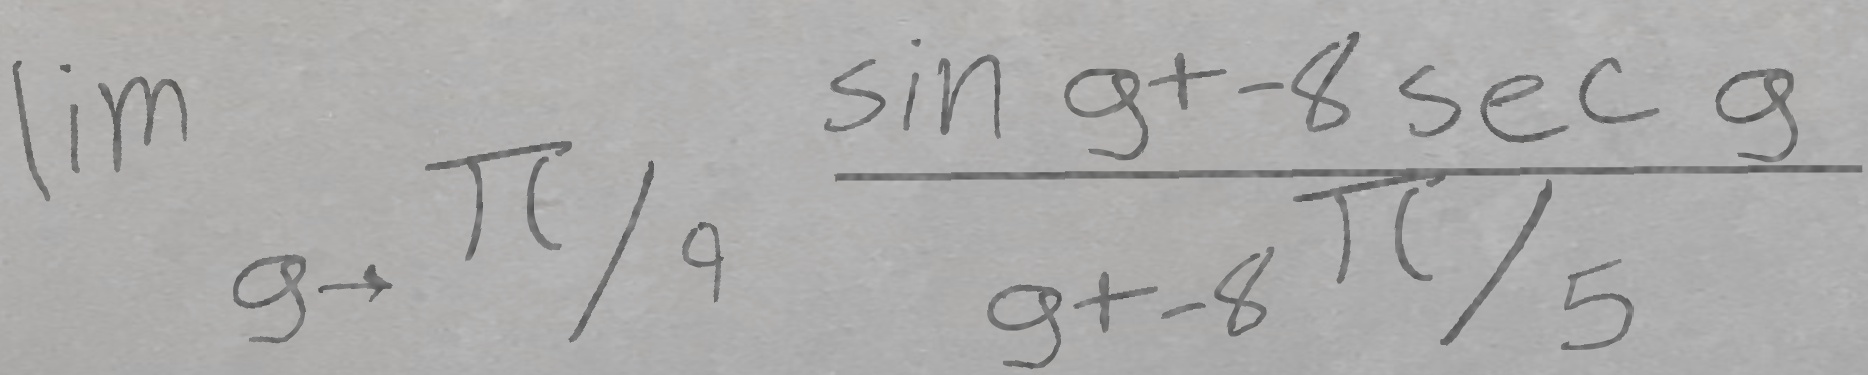 lim g→π/9 (sin g+-8 sec g)/(g+-8π/5)